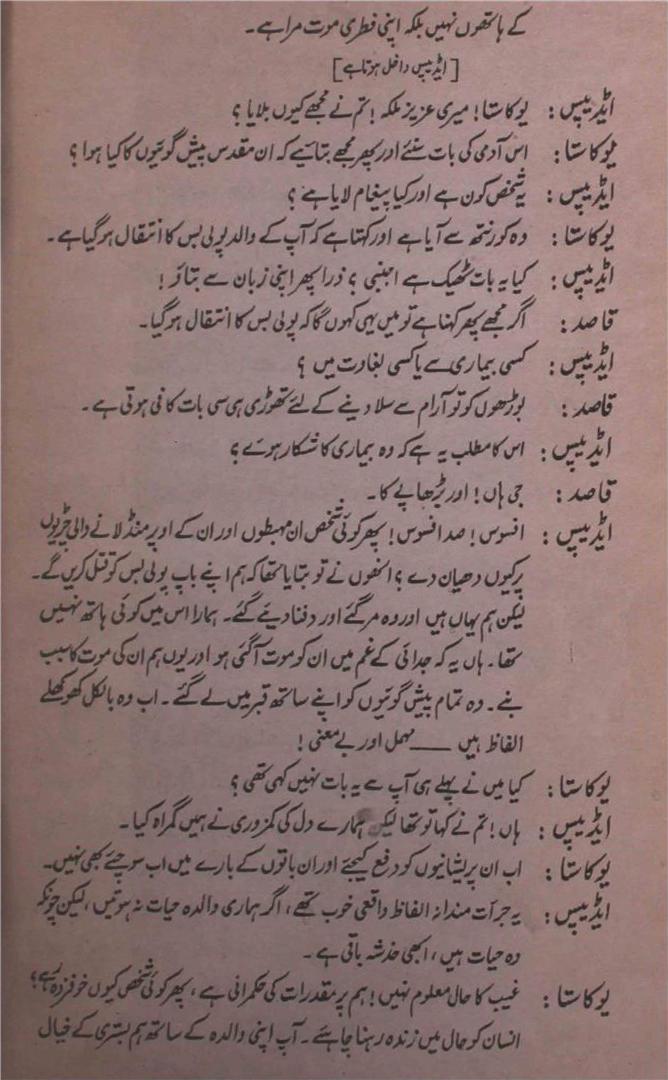 کے ہاتھوں نہیں بلکہ اپنی فطری موت مرا ہے۔
[ایڈیپس داخل ہوتا ہے]
ایڈیپس : یوکاستا! میری عزیز ملکہ! تم نے مجھے کیوں بلایا ؟
یوکاستا : اس آدمی کی بات سنئے اور پھر مجھے بتائیے کہ ان مقدس پیش گوئیوں کا کیا ہوا ؟
ایڈیپس : یہ شخص کون ہے اور کیا پیغام لایا ہے ؟
یوکاستا : وہ کورنتھ سے آیا ہے اور کہتا ہے کہ آپ کے والد پولی بس کا انتقال ہو گیا ہے۔
ایڈیپس : کیا یہ بات ٹھیک ہے اجنبی ؟ ذرا پھر اپنی زبان سے بتاؤ !
قاصد : اگر مجھے پھر کہنا ہے تو میں یہی کہوں گا کہ پولی بس کا انتقال ہو گیا۔
ایڈیپس : کسی بیماری سے یا کسی بغاوت میں ؟
قاصد : بوڑھوں کو تو آرام سے سلا دینے کے لئے تھوڑی ہی سی بات کافی ہوتی ہے۔
ایڈیپس : اس کا مطلب یہ ہے کہ وہ بیماری کا شکار ہوئے ؟
قاصد : جی ہاں! اور بڑھاپے کا۔
ایڈیپس : افسوس! صد افسوس! پھر کوئی شخص ان مہبطوں اور ان کے اوپر منڈلانے والی چڑیوں
پر کیوں دھیان دے ؟ انھوں نے تو بتایا تھا کہ ہم اپنے باپ پولی بس کو قتل کریں گے۔
لیکن ہم یہاں ہیں اور وہ مر گئے اور دفنا دیئے گئے۔ ہمارا اس میں کوئی ہاتھ نہیں
تھا۔ ہاں یہ کہ جدائی کے غم میں ان کو موت آ گئی ہو اور یوں ہم ان کی موت کا سبب
بنے۔ وہ تمام پیش گوئیوں کو اپنے ساتھ قبر میں لے گئے۔ اب وہ بالکل کھوکھلے
الفاظ ہیں —— مہمل اور بے معنی !
یوکاستا : کیا میں نے پہلے ہی آپ سے یہ بات نہیں کہی تھی ؟
ایڈیپس : ہاں! تم نے کہا تو تھا لیکن ہمارے دل کی کمزوری نے ہمیں گمراہ کیا۔
یوکاستا : اب ان پریشانیوں کو دفع کیجئے اور ان باتوں کے بارے میں اب سوچئے بھی نہیں۔
ایڈیپس : یہ جرأت مندانہ الفاظ واقعی خوب تھے، اگر ہماری والدہ حیات نہ ہوتیں، لیکن چونکہ
وہ حیات ہیں، ابھی خدشہ باقی ہے۔
یوکاستا : غیب کا حال معلوم نہیں! ہم پر مقدرات کی حکمرانی ہے، پھر کوئی شخص کیوں خوفزدہ رہے؟
انسان کو حال میں زندہ رہنا چاہئے۔ آپ اپنی والدہ کے ساتھ ہم بستری کے خیال